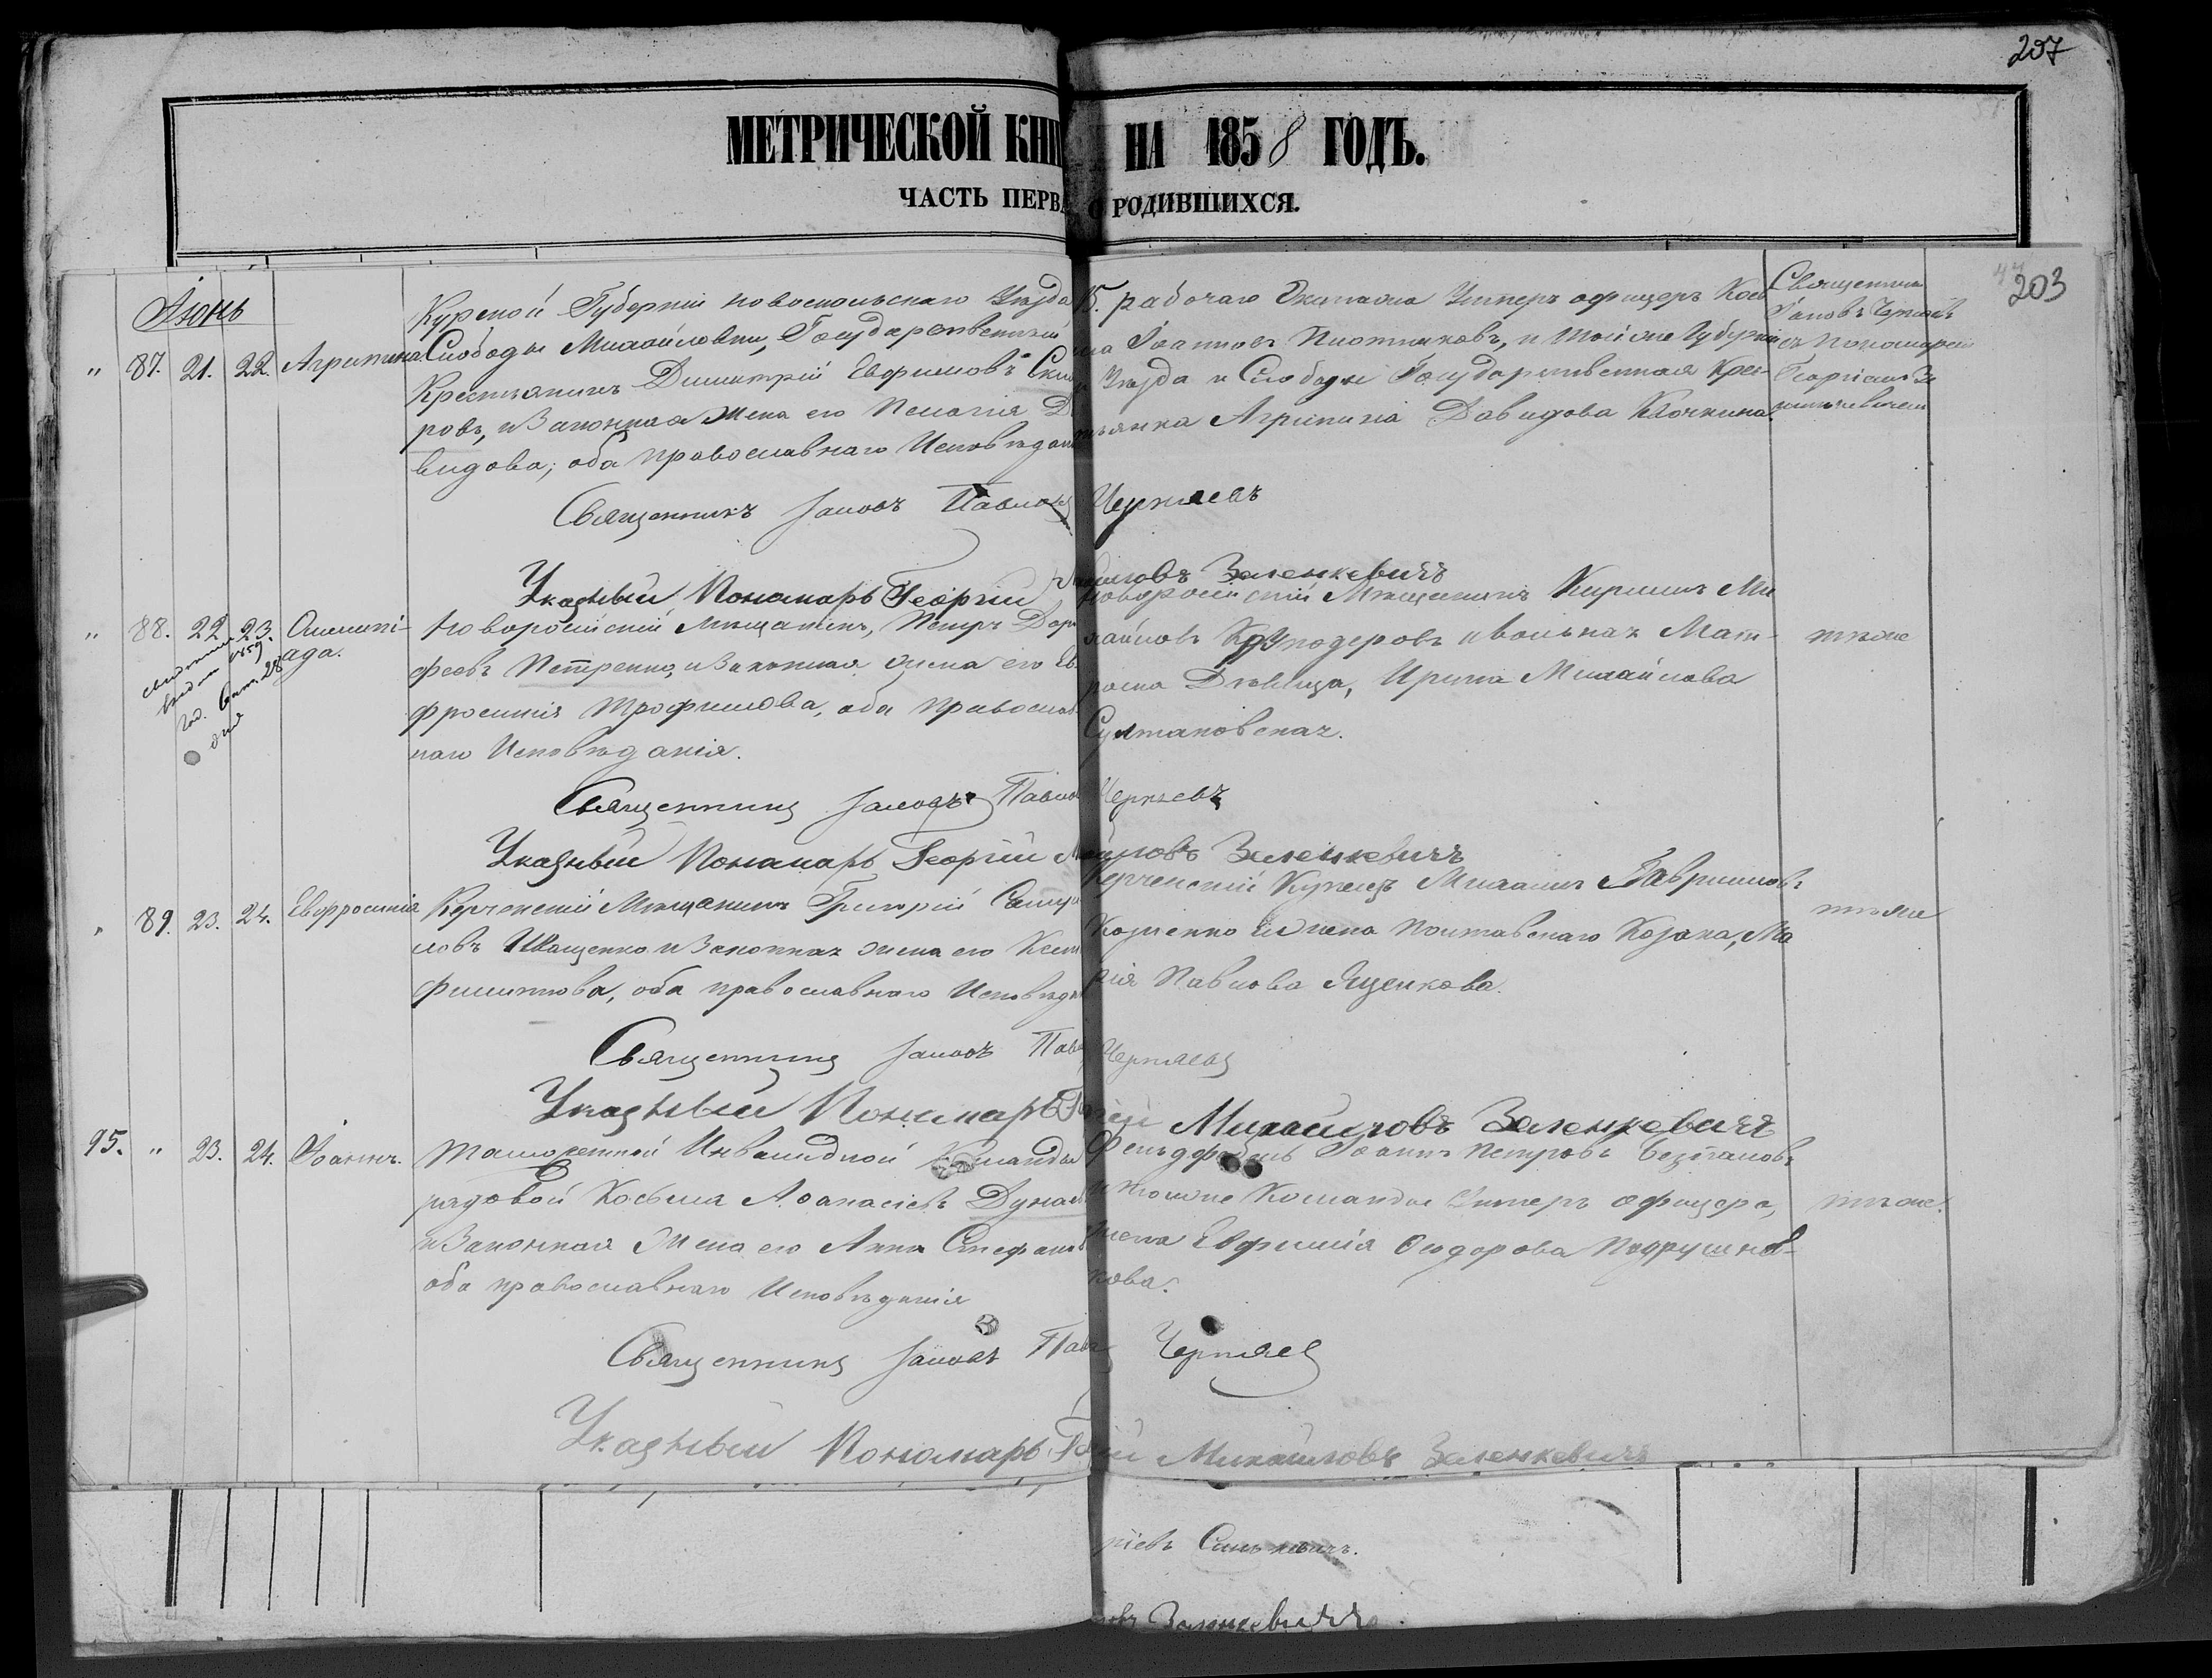 207
МЕТРИЧЕСКОЙ КНИ НА 1858 ГОДЪ.
ЧАСТЬ ПЕРВА О РОДИВШИХСЯ.
203
Іюнь
„ 87. 21. 22. Агрипина
Курской Губерніи Новооскольскаго Уѣзда
Слободы Михайловки, Государственный
Крестьянинъ Димитрій Евфимовъ
ровъ, и Законная жена его Пелагія Да
видова; оба православнаго Исповѣдан
15. рабочаго Экипажа Унтеръ офицеръ Кось
ма Іоанновъ Плотниковъ, и той же Губерніи
Уѣзда и Слободы Государственная Крес-
тьянка Агрипина Давидова Клочкина.
Священникъ
Іаковъ Черняевъ
съ Пономаремъ
Георгіемъ Зе
ленкевичемъ
Священникъ Іаковъ Павлов Черняевъ
Указный Пономарь Георгій Михайловъ Зеленкевичъ
„ 88. 22. 23. Олимпі-
ада.
1859
28
дня
Новоросійскій Мѣщанинъ, Петръ Доро
феевъ Петренко, и Законная жена его Ев
фросинія Трофимова, оба Православ
наго Исповѣданія.
Новоросійскій Мѣщанинъ Кириллъ Ми
хайловъ и вольная Мат-
роска Дѣвица, Ирина Михайлова
Султановская.
тѣже
Священникъ Іаковъ Павлов Черняевъ
Указный Пономарь Георгій Михайловъ Зеленкевичъ
„ 89. 23. 24. Евфросинія
Керченскій Мѣщанинъ Григорій Саму
ловъ Иващенко и Законная жена его Ксен
Филиппова, оба православнаго Исповѣдан
Керченскій Купецъ Михаилъ Гавриловъ
Козленко и жена Полтавскаго Козака, Ма
рія Павлова Яценкова.
тѣже
Священникъ Іаковъ Павл Черняевъ
Указный Пономарь Георгій Михайловъ Зеленкевичъ
95. „ 23. 24. Іоаннъ.
Таможенной Инвалидной Команды
рядовой Косьма Аѳанасіевъ Дунаев
и Законная жена его Анна Стефанов
оба православнаго Исповѣданія
Фельдфебель Іоаннъ Петровъ
и тойже Команды Унтеръ офицера,
жена Евфимія Ѳеодорова
кова.
тѣже.
Священникъ Іаковъ Павл Черняев
Указный Пономарь Георгій Михайловъ Зеленкевичъ
ріевъ
овъ Зеленкевичъ.